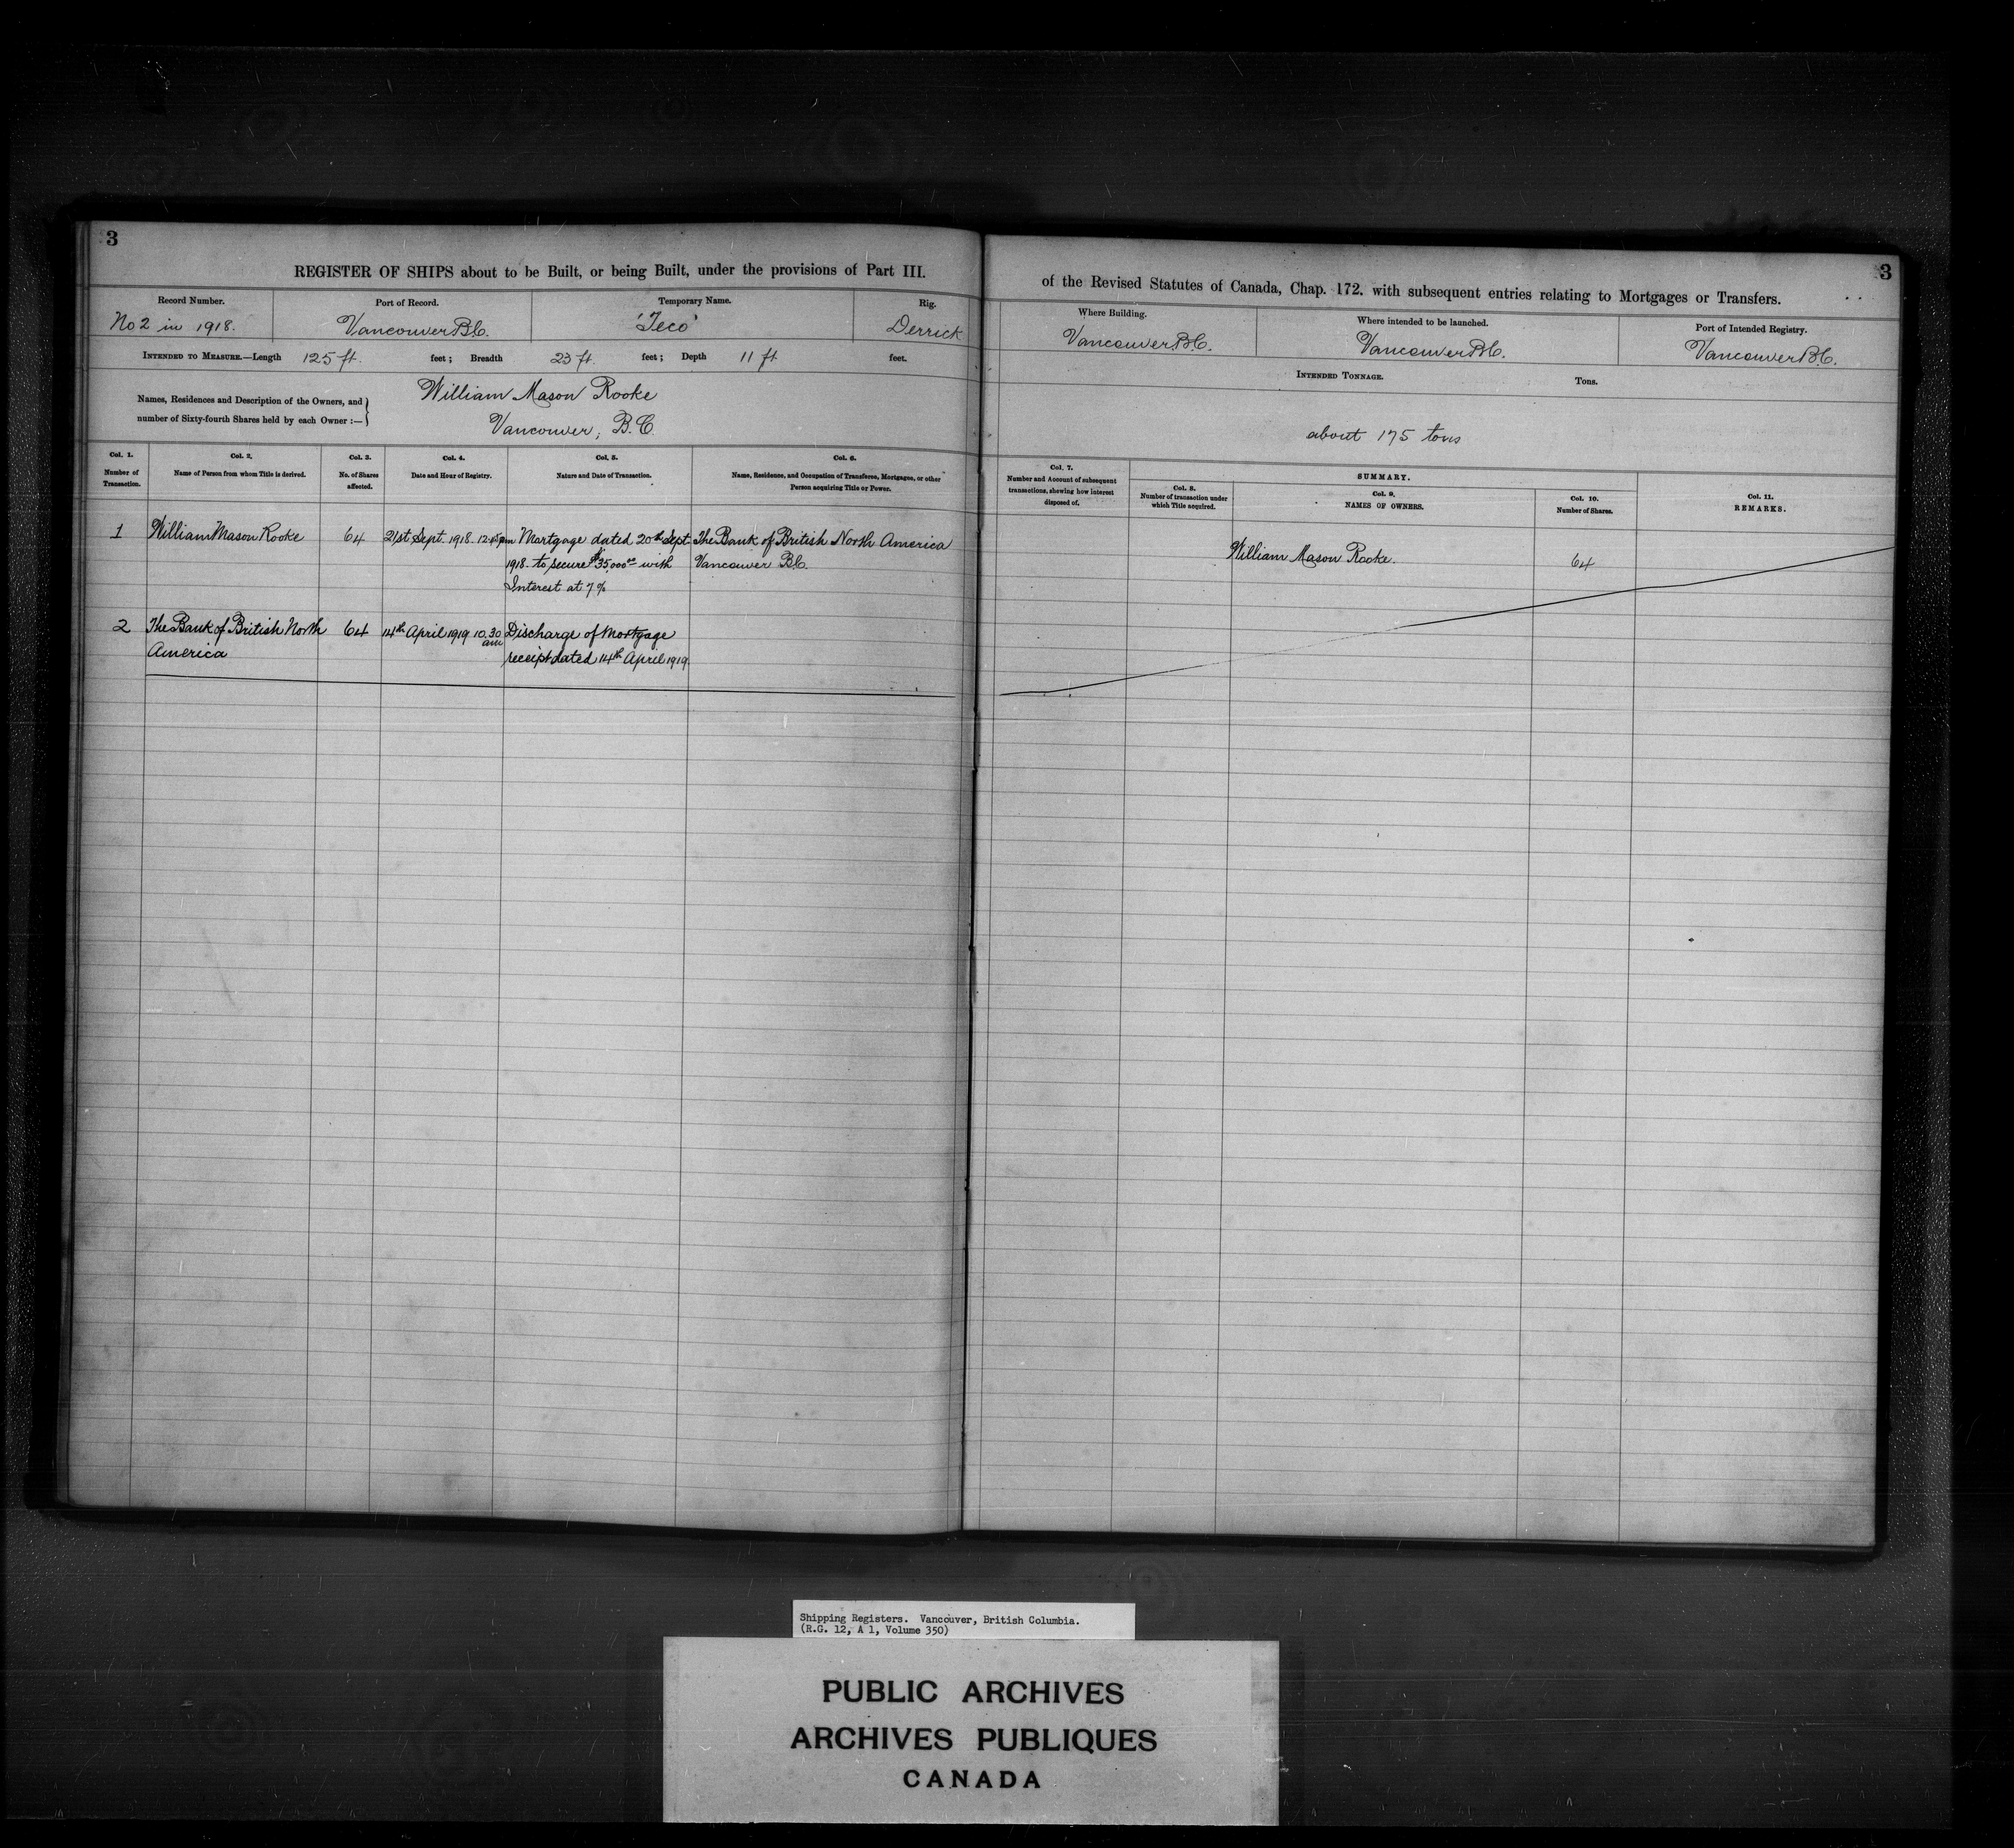 3
REGISTER OF SHIPS about to be Built, or being Built, under the provisions of Part III.
Record Number.
No 2 in 1918.
Port of Record.
Vancouver B.C.
Temporary Name.
'Teco'
Rig.
Derrick
INTENDED TO MEASURE.—Length 125 ft. feet; Breadth 23 ft. feet; Depth 11 ft feet.
Names, Residences and Description of the Owners, and
number of Sixty-fourth Shares held by each Owner :—
William Mason Rooke
Vancouver, B.C.
Col. 1.
Number of
Transaction.
Col. 2.
Name of Person from whom Title is derived.
Col. 3.
No. of Shares
affected.
Col. 4.
Date and Hour of Registry.
Col. 5.
Nature and Date of Transaction.
Col. 6.
Name, Residence, and Occupation of Transferee, Mortgagee, or other
Person acquiring Title or Power.
1 William Mason Rooke 64 21st Sept. 1918. 12.45pm Mortgage dated 20th Sept. The Bank of British North America
1918. to secure $35,000.00 with Vancouver B.C.
Interest at 7%
2 The Bank of British North 64 14th April 1919 10.30 Discharge of Mortgage
America am receipt dated 14th April 1919
3
of the Revised Statutes of Canada, Chap. 172. with subsequent entries relating to Mortgages or Transfers.
Where Building.
Vancouver B.C.
Where intended to be launched.
Vancouver B.C.
Port of Intended Registry.
Vancouver B.C.
INTENDED TONNAGE. Tons.
about 175 tons
Col. 7.
Number and Account of subsequent
transactions, shewing how interest
disposed of.
SUMMARY.
Col. 8.
Number of transaction under
which Title acquired.
Col. 9.
NAMES OF OWNERS.
Col. 10.
Number of Shares.
Col. 11.
REMARKS.
William Mason Rooke. 64
Shipping Registers. Vancouver, British Columbia.
(R.G. 12, A 1, Volume 350)
PUBLIC ARCHIVES
ARCHIVES PUBLIQUES
CANADA